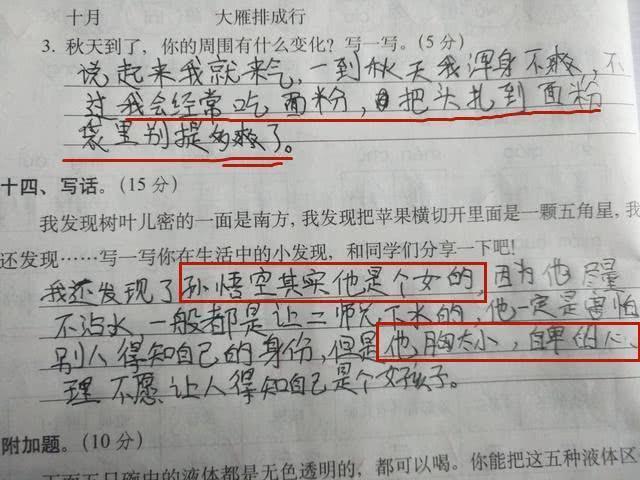 十月 大雁排成行
3. 秋天到了，你的周围有什么变化？写一写。(5分)
说起来我就来气，一到秋天我浑身不爽，不
过我会经常吃面粉，把头扎到面粉
袋里别提多爽了。
十四、写话。(15分)
我发现树叶儿密的一面是南方，我发现把苹果横切开里面是一颗五角星，我
还发现……写一写你在生活中的小发现，和同学们分享一下吧!
我还发现了孙悟空其实他是个女的，因为他尽量
不沾水一般都是让二师兄下水的，他一定是害怕
别人得知自己的身份，但是他胸太小，自卑的心
理不愿让人得知自己是个女孩子。
附加题。(10分)
下面五只碗中的液体都是无色透明的，都可以喝。你能把这五种液体区